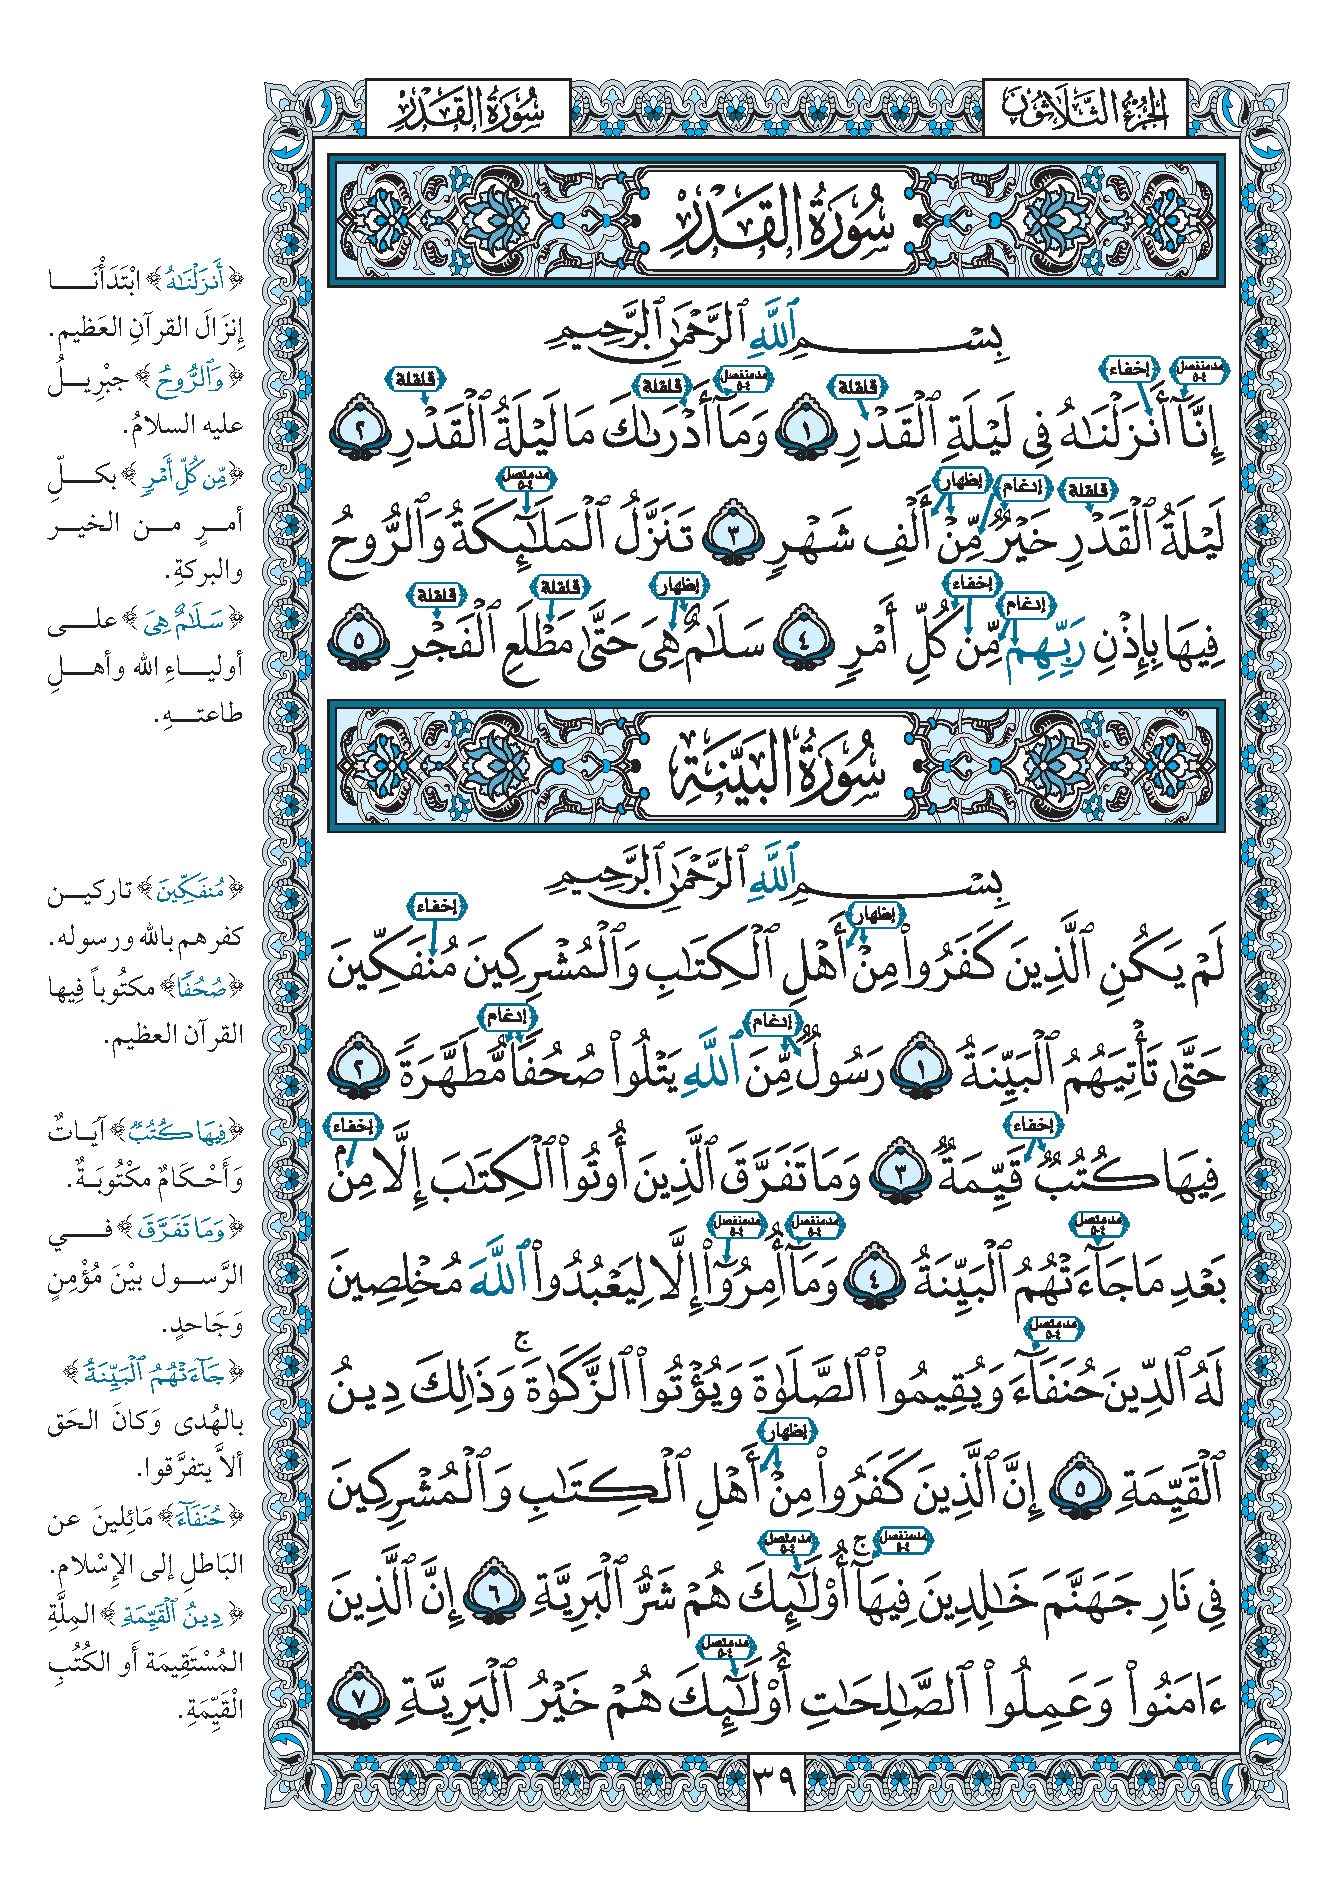 الجزء الثلاثون
سورة القدر
سُورَةُ القَدْرِ
بِسْمِ ٱللَّهِ ٱلرَّحْمَٰنِ ٱلرَّحِيمِ
مد منفصل ٤-٥ إخفاء قلقلة مد منفصل ٤-٥ قلقلة قلقلة
إِنَّآ أَنزَلْنَٰهُ فِى لَيْلَةِ ٱلْقَدْرِ ١ وَمَآ أَدْرَىٰكَ مَا لَيْلَةُ ٱلْقَدْرِ ٢
قلقلة إدغام إظهار مد متصل ٤-٥
لَيْلَةُ ٱلْقَدْرِ خَيْرٌ مِّنْ أَلْفِ شَهْرٍ ٣ تَنَزَّلُ ٱلْمَلَٰٓئِكَةُ وَٱلرُّوحُ
إدغام إخفاء إظهار قلقلة قلقلة
فِيهَا بِإِذْنِ رَبِّهِم مِّن كُلِّ أَمْرٍ ٤ سَلَٰمٌ هِىَ حَتَّىٰ مَطْلَعِ ٱلْفَجْرِ ٥
سُورَةُ البَيِّنَةِ
بِسْمِ ٱللَّهِ ٱلرَّحْمَٰنِ ٱلرَّحِيمِ
إظهار إخفاء
لَمْ يَكُنِ ٱلَّذِينَ كَفَرُوا۟ مِنْ أَهْلِ ٱلْكِتَٰبِ وَٱلْمُشْرِكِينَ مُنفَكِّينَ
إدغام إدغام
حَتَّىٰ تَأْتِيَهُمُ ٱلْبَيِّنَةُ ١ رَسُولٌ مِّنَ ٱللَّهِ يَتْلُوا۟ صُحُفًا مُّطَهَّرَةً ٢
إخفاء إخفاء
فِيهَا كُتُبٌ قَيِّمَةٌ ٣ وَمَا تَفَرَّقَ ٱلَّذِينَ أُوتُوا۟ ٱلْكِتَٰبَ إِلَّا مِنۢ
مد متصل ٤-٥ مد منفصل ٤-٥ مد منفصل ٤-٥
بَعْدِ مَا جَآءَتْهُمُ ٱلْبَيِّنَةُ ٤ وَمَآ أُمِرُوٓا۟ إِلَّا لِيَعْبُدُوا۟ ٱللَّهَ مُخْلِصِينَ
مد متصل ٤-٥
لَهُ ٱلدِّينَ حُنَفَآءَ وَيُقِيمُوا۟ ٱلصَّلَوٰةَ وَيُؤْتُوا۟ ٱلزَّكَوٰةَ ۚ وَذَٰلِكَ دِينُ
إظهار
ٱلْقَيِّمَةِ ٥ إِنَّ ٱلَّذِينَ كَفَرُوا۟ مِنْ أَهْلِ ٱلْكِتَٰبِ وَٱلْمُشْرِكِينَ
مد منفصل ٤-٥ مد متصل ٤-٥
فِى نَارِ جَهَنَّمَ خَٰلِدِينَ فِيهَآ ۚ أُو۟لَٰٓئِكَ هُمْ شَرُّ ٱلْبَرِيَّةِ ٦ إِنَّ ٱلَّذِينَ
مد متصل ٤-٥
ءَامَنُوا۟ وَعَمِلُوا۟ ٱلصَّٰلِحَٰتِ أُو۟لَٰٓئِكَ هُمْ خَيْرُ ٱلْبَرِيَّةِ ٧
٣٩
﴿أَنزَلْنَٰهُ﴾ ابْتَدَأْنَا
إِنزَالَ القرآنِ العَظيم.
﴿وَٱلرُّوحُ﴾ جبْرِيلُ
عليه السلامُ.
﴿مِّن كُلِّ أَمْرٍ﴾ بكلِّ
أمرٍ من الخير
والبركةِ.
﴿سَلَٰمٌ هِىَ﴾ على
أولياءِ الله وأهلِ
طاعتهِ.
﴿مُنفَكِّينَ﴾ تاركين
كفرهم بالله ورسوله.
﴿صُحُفًا﴾ مكتُوباً فِيها
القرآن العظيم.
﴿فِيهَا كُتُبٌ﴾ آيَاتٌ
وَأَحْكَامٌ مكْتُوبَةٌ.
﴿وَمَا تَفَرَّقَ﴾ في
الرَّسول بيْنَ مُؤْمِنٍ
وَجَاحدٍ.
﴿جَآءَتْهُمُ ٱلْبَيِّنَةُ﴾
بالهُدى وَكانَ الحَق
ألاَّ يتفرَّقوا.
﴿حُنَفَآءَ﴾ مَائِلينَ عن
البَاطلِ إلى الإِسْلامِ.
﴿دِينُ ٱلْقَيِّمَةِ﴾ المِلَّةِ
المُسْتَقِيمَة أَو الكُتُبِ
الْقَيِّمَةِ.